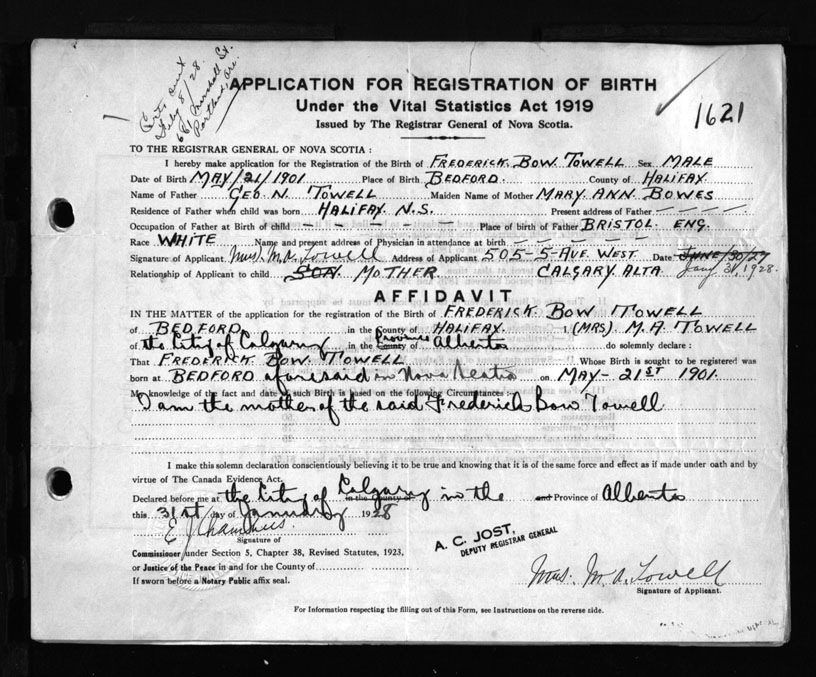 Certs out
Feby 8/28.
Marshall St.
Portland, Ore.
APPLICATION FOR REGISTRATION OF BIRTH
Under the Vital Statistics Act 1919
Issued by The Registrar General of Nova Scotia.
1621
TO THE REGISTRAR GENERAL OF NOVA SCOTIA :
I hereby make application for the Registration of the Birth of FREDERICK BOW TOWELL Sex MALE
Date of Birth MAY/21/1901 Place of Birth BEDFORD County of HALIFAX
Name of Father GEO N. TOWELL Maiden Name of Mother MARY ANN BOWES
Residence of Father when child was born HALIFAX N.S. Present address of Father - - -
Occupation of Father at Birth of child - - - - - - Place of birth of Father BRISTOL ENG.
Race WHITE Name and present address of Physician in attendance at birth - - - - - -
Signature of Applicant Mrs. M.A. Towell Address of Applicant 505-5-AVE WEST Date JUNE/30/27
Relationship of Applicant to child SON MOTHER CALGARY ALTA Jany 31, 1928.
AFFIDAVIT
IN THE MATTER of the application for the registration of the Birth of FREDERICK BOW TOWELL
of BEDFORD in the County of HALIFAX I (MRS) M.A. TOWELL
of the City of Calgary in the County Province of Alberta do solemnly declare :
That FREDERICK BOW TOWELL Whose Birth is sought to be registered was
born at BEDFORD aforesaid in Nova Scotia on MAY- 21ST 1901.
My knowledge of the fact and date of such Birth is based on the following Circumstances
I am the mother of the said Frederick Bow Towell
I make this solemn declaration conscientiously believing it to be true and knowing that it is of the same force and effect as if made under oath and by
virtue of The Canada Evidence Act.
Declared before me at the City of Calgary in the County of in the and Province of Alberta
this 31st day of January 1928
E J Chambers
Signature of
Commissioner under Section 5, Chapter 38, Revised Statutes, 1923,
or Justice of the Peace in and for the County of
If sworn before a Notary Public affix seal.
A. C. JOST,
DEPUTY REGISTRAR GENERAL
Mrs. M. A. Towell
Signature of Applicant.
For Information respecting the filling out of this Form, see Instructions on the reverse side.